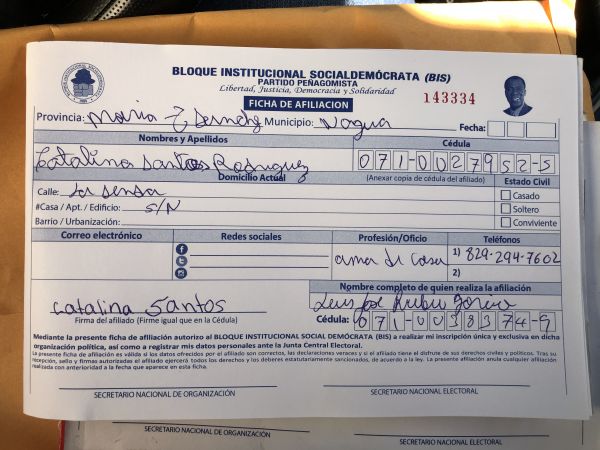 BLOQUE INSTITUCIONAL SOCIALDEMÓCRATA (BIS)
PARTIDO PEÑAGOMISTA
Libertad, Justicia, Democracia y Solidaridad
FICHA DE AFILIACION
143334
Provincia: Maria T Municipio: Nagua Fecha:
Nombres y Apellidos Cédula
Catalina Santos Rosriguez 071-0027952-5
Domicilio Actual (Anexar copia de cédula del afiliado) Estado Civil
Calle: La
#Casa / Apt. / Edificio: S/N
Barrio / Urbanización:
Casado
Soltero
Conviviente
Correo electrónico Redes sociales Profesión/Oficio Teléfonos
ama de casa 1) 829-294-7602
2)
Nombre completo de quien realiza la afiliación
Catalina Santos Luis Jose
Firma del afiliado (Firme igual que en la Cédula) Cédula: 071-0038374-9
Mediante la presente ficha de afiliación autorizo al BLOQUE INSTITUCIONAL SOCIAL DEMÓCRATA (BIS) a realizar mi inscripción única y exclusiva en dicha
organización política, así como a registrar mis datos personales ante la Junta Central Electoral.
La presente ficha de afiliación es válida si los datos ofrecidos por el afiliado son correctos, las declaraciones veraces y si el afiliado tiene el disfrute de sus derechos civiles y políticos. Tras su
recepción, sello y firmas autorizadas el afiliado ejercerá todos los derechos y los deberes estatutariamente sancionados, de acuerdo a la ley. La presente afiliación anula cualquier afiliación
realizada con anterioridad a la fecha que aparece en esta ficha.
SECRETARIO NACIONAL DE ORGANIZACIÓN SECRETARIO NACIONAL ELECTORAL
SECRETARIO NACIONAL DE ORGANIZACIÓN SECRETARIO NACIONAL ELECTORAL